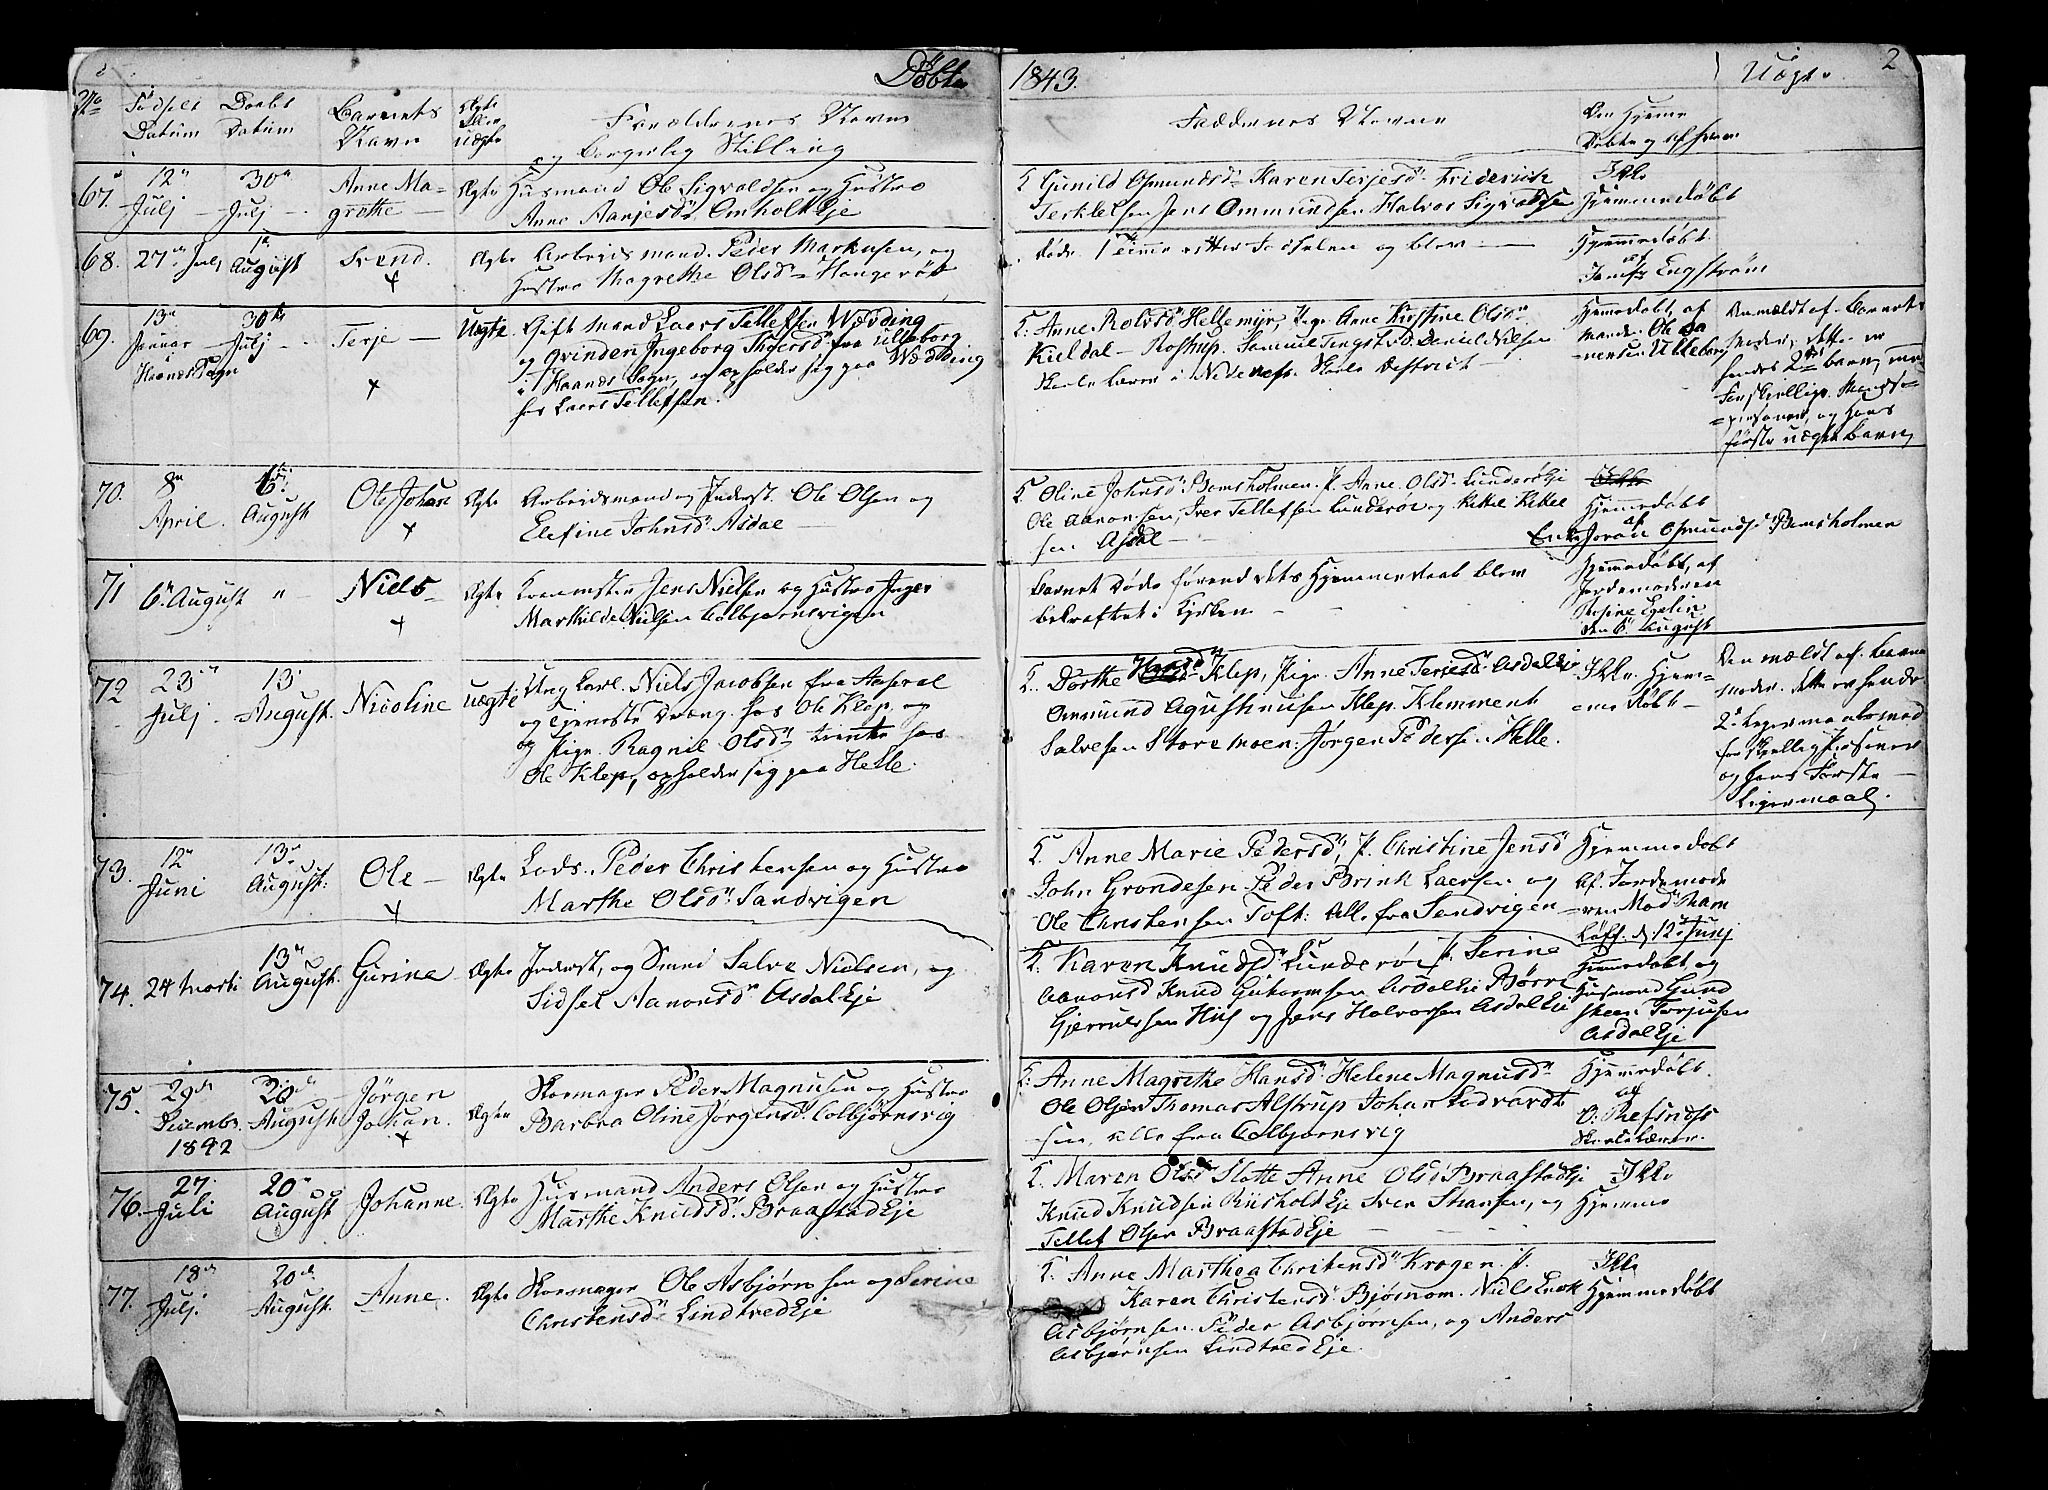 Døbte
1843.
Uægte
2
No
Fødsels Datum
Daabs Datum
Barnets Navn
Ægte eller uægte
Forældrenes Navne og Borgerlig Stilling
Faddernes Navne
Om Hjemme Døbte og af hvem
67. 12 Julj 30 Julj Anne Magrethe Ægte
Husmand Ole Sigvoldsen og Hustro
Anne Aanjesd Omholt Eje
Gunild Osmundsd Karen Terjesd Friderich
Terkelsen Jens Ommundsen Halvor Sigvoldsen
Ikke
Hjemmedøbt
68. 27 Julj August Svend Ægte
Arbeidsmand Peder Markusen, og
Hustro Magrethe Olsd
døde 1 Time efter Fødselen og blev
Hjemmedøbt
af
Jomfr Engstrøm
69. 13 Januar 30 Julj Terje Uægte
Gift Mand Laers Tellefsen Wædding
og Qvinden Ingeborg fra Ulleborg
i Sogn, opholder sig paa Wædding
hos Laers Tellefsen.
Anne Rolvsd Hellemyr, Pige Anne Kirstine Olsd
Kieldal Rostrup. Samuel Daniel Nielsen
Skolelærer i Nedenes Skole Destrict
Hjemedøbt, af
Mands Ole
Ulleberg
Anmældt af Barnets
Moder, dette er
hendes 2det barn, med
forskjellige Mands
personer, og hans
første uægte barn,
70. 8 April 6 August Ole Johan Ægte
Arbeidsmand og Inderst Ole Olsen og
Elefine Johnsd Asdal
Oline Johnsd Bomsholmen P. Anne Olsd Lunderø Eje
Ole Aanonsen, Iver Tellefsen Lunderøe og
sen Asdal
Hjemmedøbt
af
Enke Joran Osmundsd Bomsholmen
71 6 August " Niels Ægte
Jens Nielsen og Hustro Inger
Marthilde Nielsen Colbjørnsvigen
Barnet Døde førend dets Hjemmedaab blev
bekræftet i Kirken
Hjemedøbt, af
Jordemoderen
den 6 August
72 23 Julj 13 August Nicoline uægte
Ung Karl. Niels Jacobsen fra Aaseral
og Tjeneste Dræng hos Ole Klep, og
og Pige Ragnil Olsd tiente hos
Ole Klep, opholder sig paa Helle.
Dorthe Hansd Klep, Pige Anne Terjesd Asdal Eje
Ommund Klep, Klemment
Salvesen Storemoen: Jørgen Pedersen Helle.
Ikke Hjem-
me Døbt
Anmældt af Barnets
Moder. dette er hendes
2 Leiermaal med
forskjellig Personer
og hans Første
Leiermaal.
73. 12 Juni 13 August Ole Ægte
Lods. Peder Christensen og Hustro
Marthe Olsd Sandvigen
Anne Marie Pedersd, P. Christine Jensd
John Grondesen Peder Brink Laersen og
Ole Christensen Toft: alle fra Sandvigen
Hjemmedøbt
af Jordemode
ren Mad Ham
d. 12 Junj
74. 24 Marti 13 August Gurine Ægte
Inderst, og Smed Salve Nielsen, og
Sidsel Aanonsd Asdal Eje
Karen Knudsd Lunderøe P. Serine
Aanonsd Knud Gutormsen Asdal Eje Børre
Gjermulsen His og Jens Halvorsen Asdal Eje
Hjemmedøbt og
Husmand Gund
Torjusen
Asdal Eje
75. 29 Decembr 1842 20 August Jørgen Johan. Ægte
Skomager Peder Magnusen og Hustro
Barbra Oline Jørgensd Colbjørnsvig
Anne Magrethe Hansd Helene Magnusd
Ole Olsen Thomas Alstrup Johan
sen, alle fra Colbjørnsvig
Hjemmedøbt
af
O. Refsnæs
Skolelærer
76. 27 Juli 20 August Johanne Ægte
Husmand Anders Olsen og Hustro
Marthe Knudsd Braastad Eje
Maren Olsd Slotte Anne Olsd Braastad Eje
Knud Knudsen Eje Sven og
Tellef Olsen Braastad Eje
Ikke
Hjemme
77. 18 Julj 20 August Anne. Ægte
Skomager Ole Asbjørnsen og Serine
Christensd Lindtved Eje
Anne Marthea Christensd Krogen P.
Karen Christensd Niels Enok
Asbjørnsen Peder Asbjørnsen, og Anders
Asbjørnsen Lindtved Eje.
Ikke
Hjemmedøbt